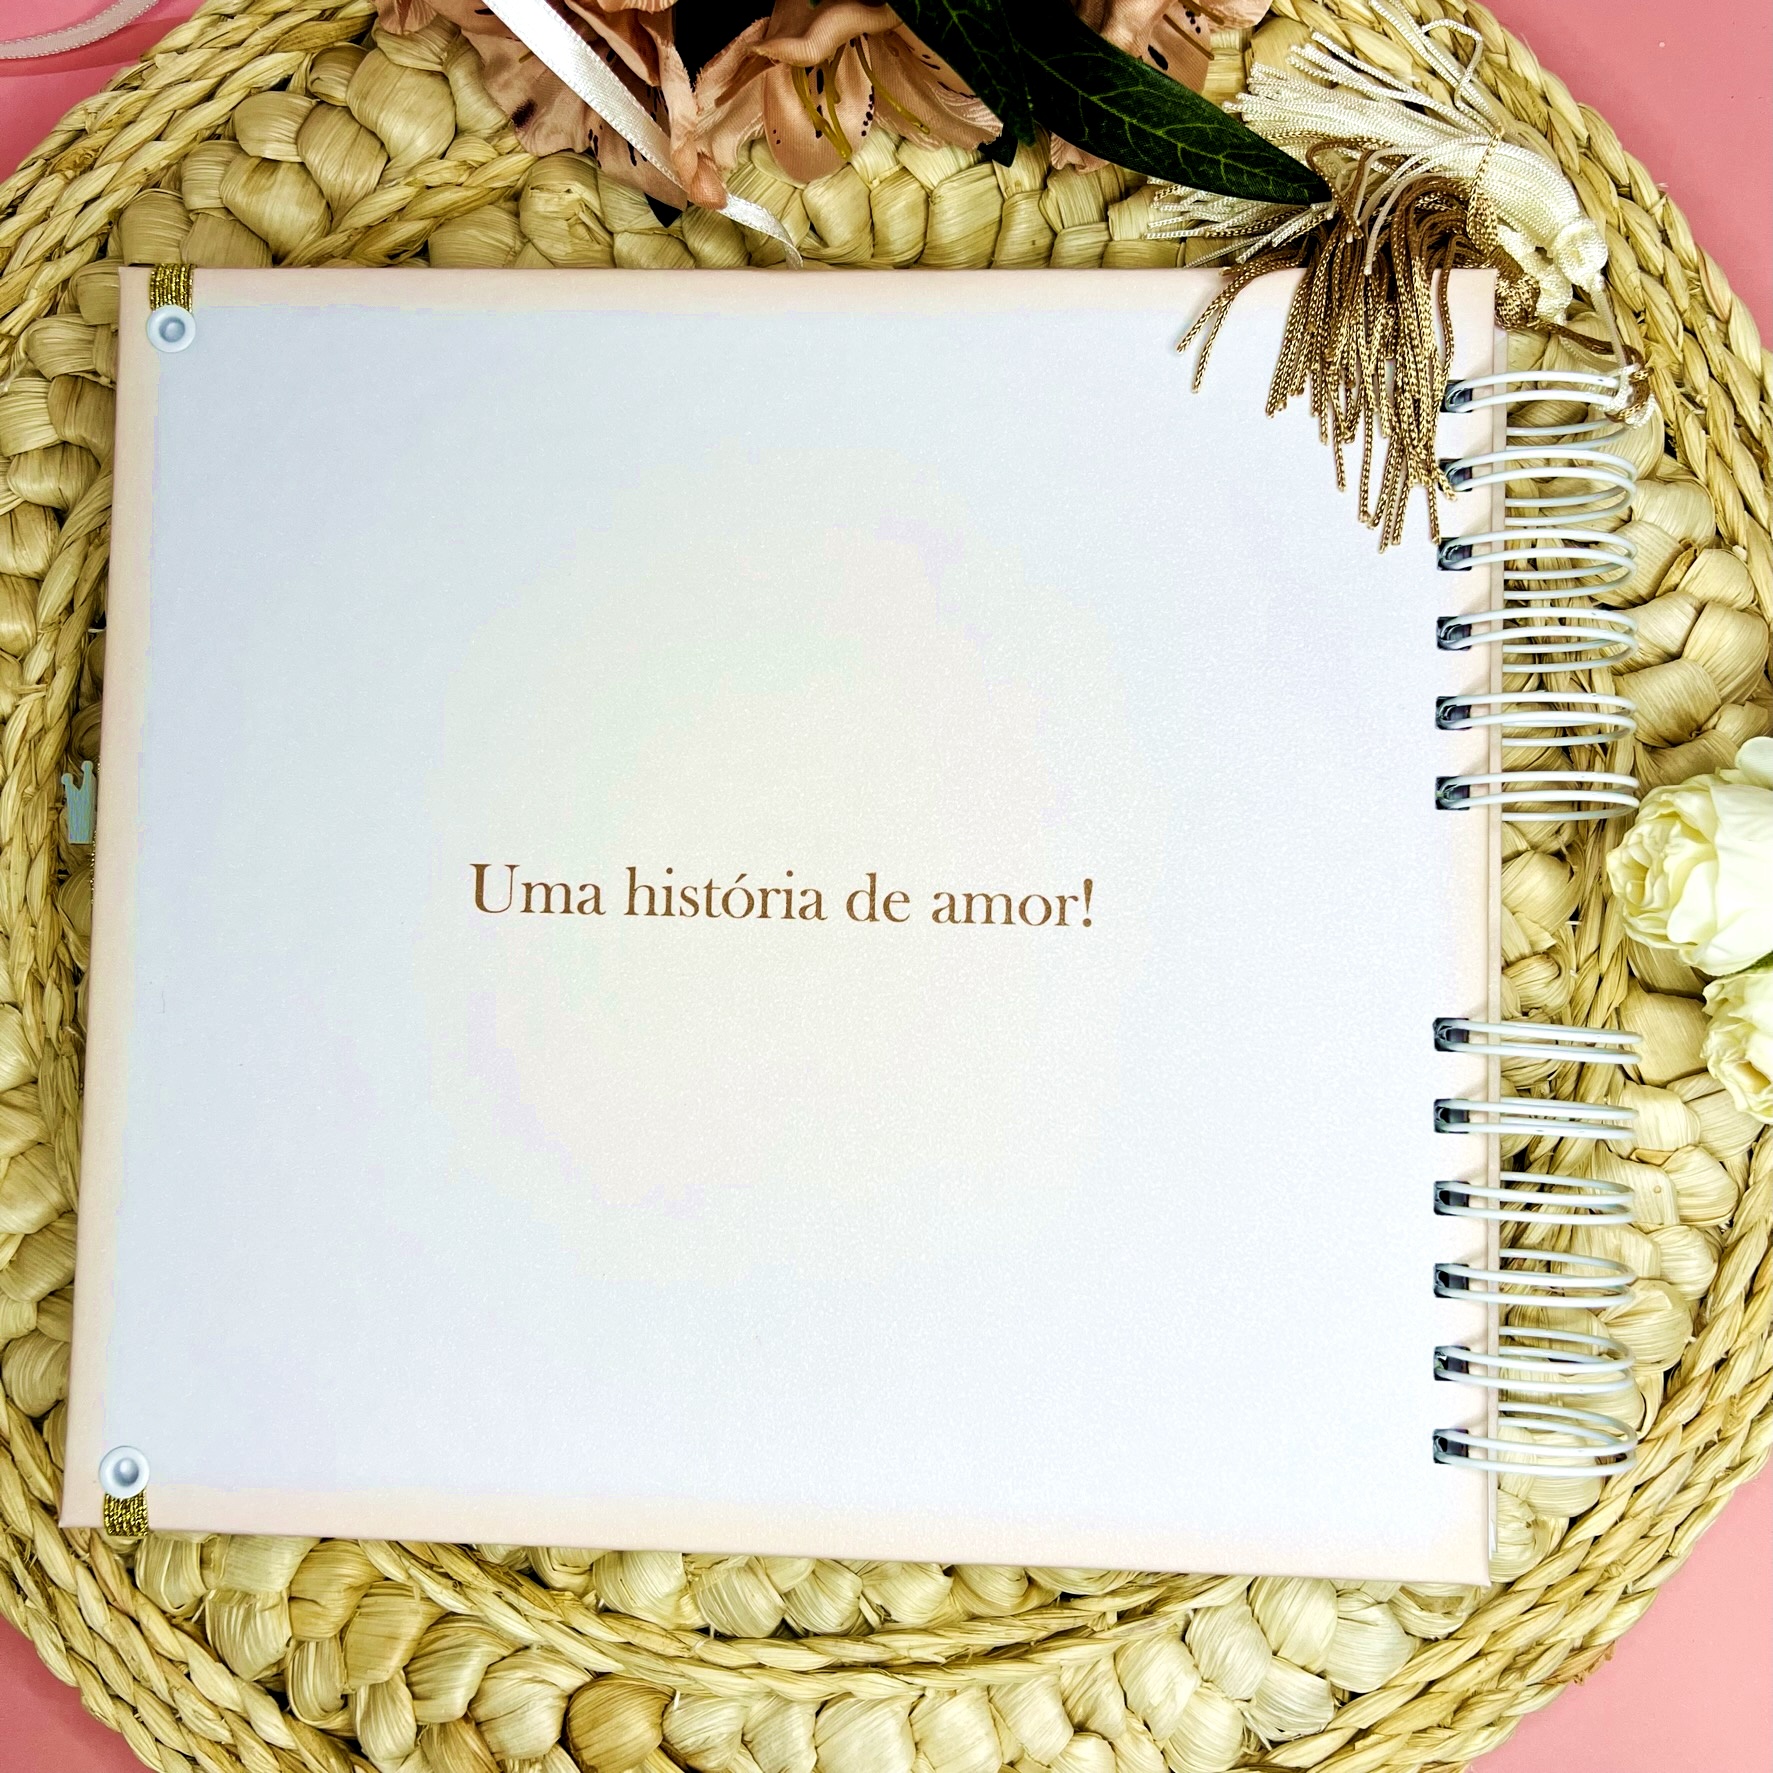 Uma história de amor!